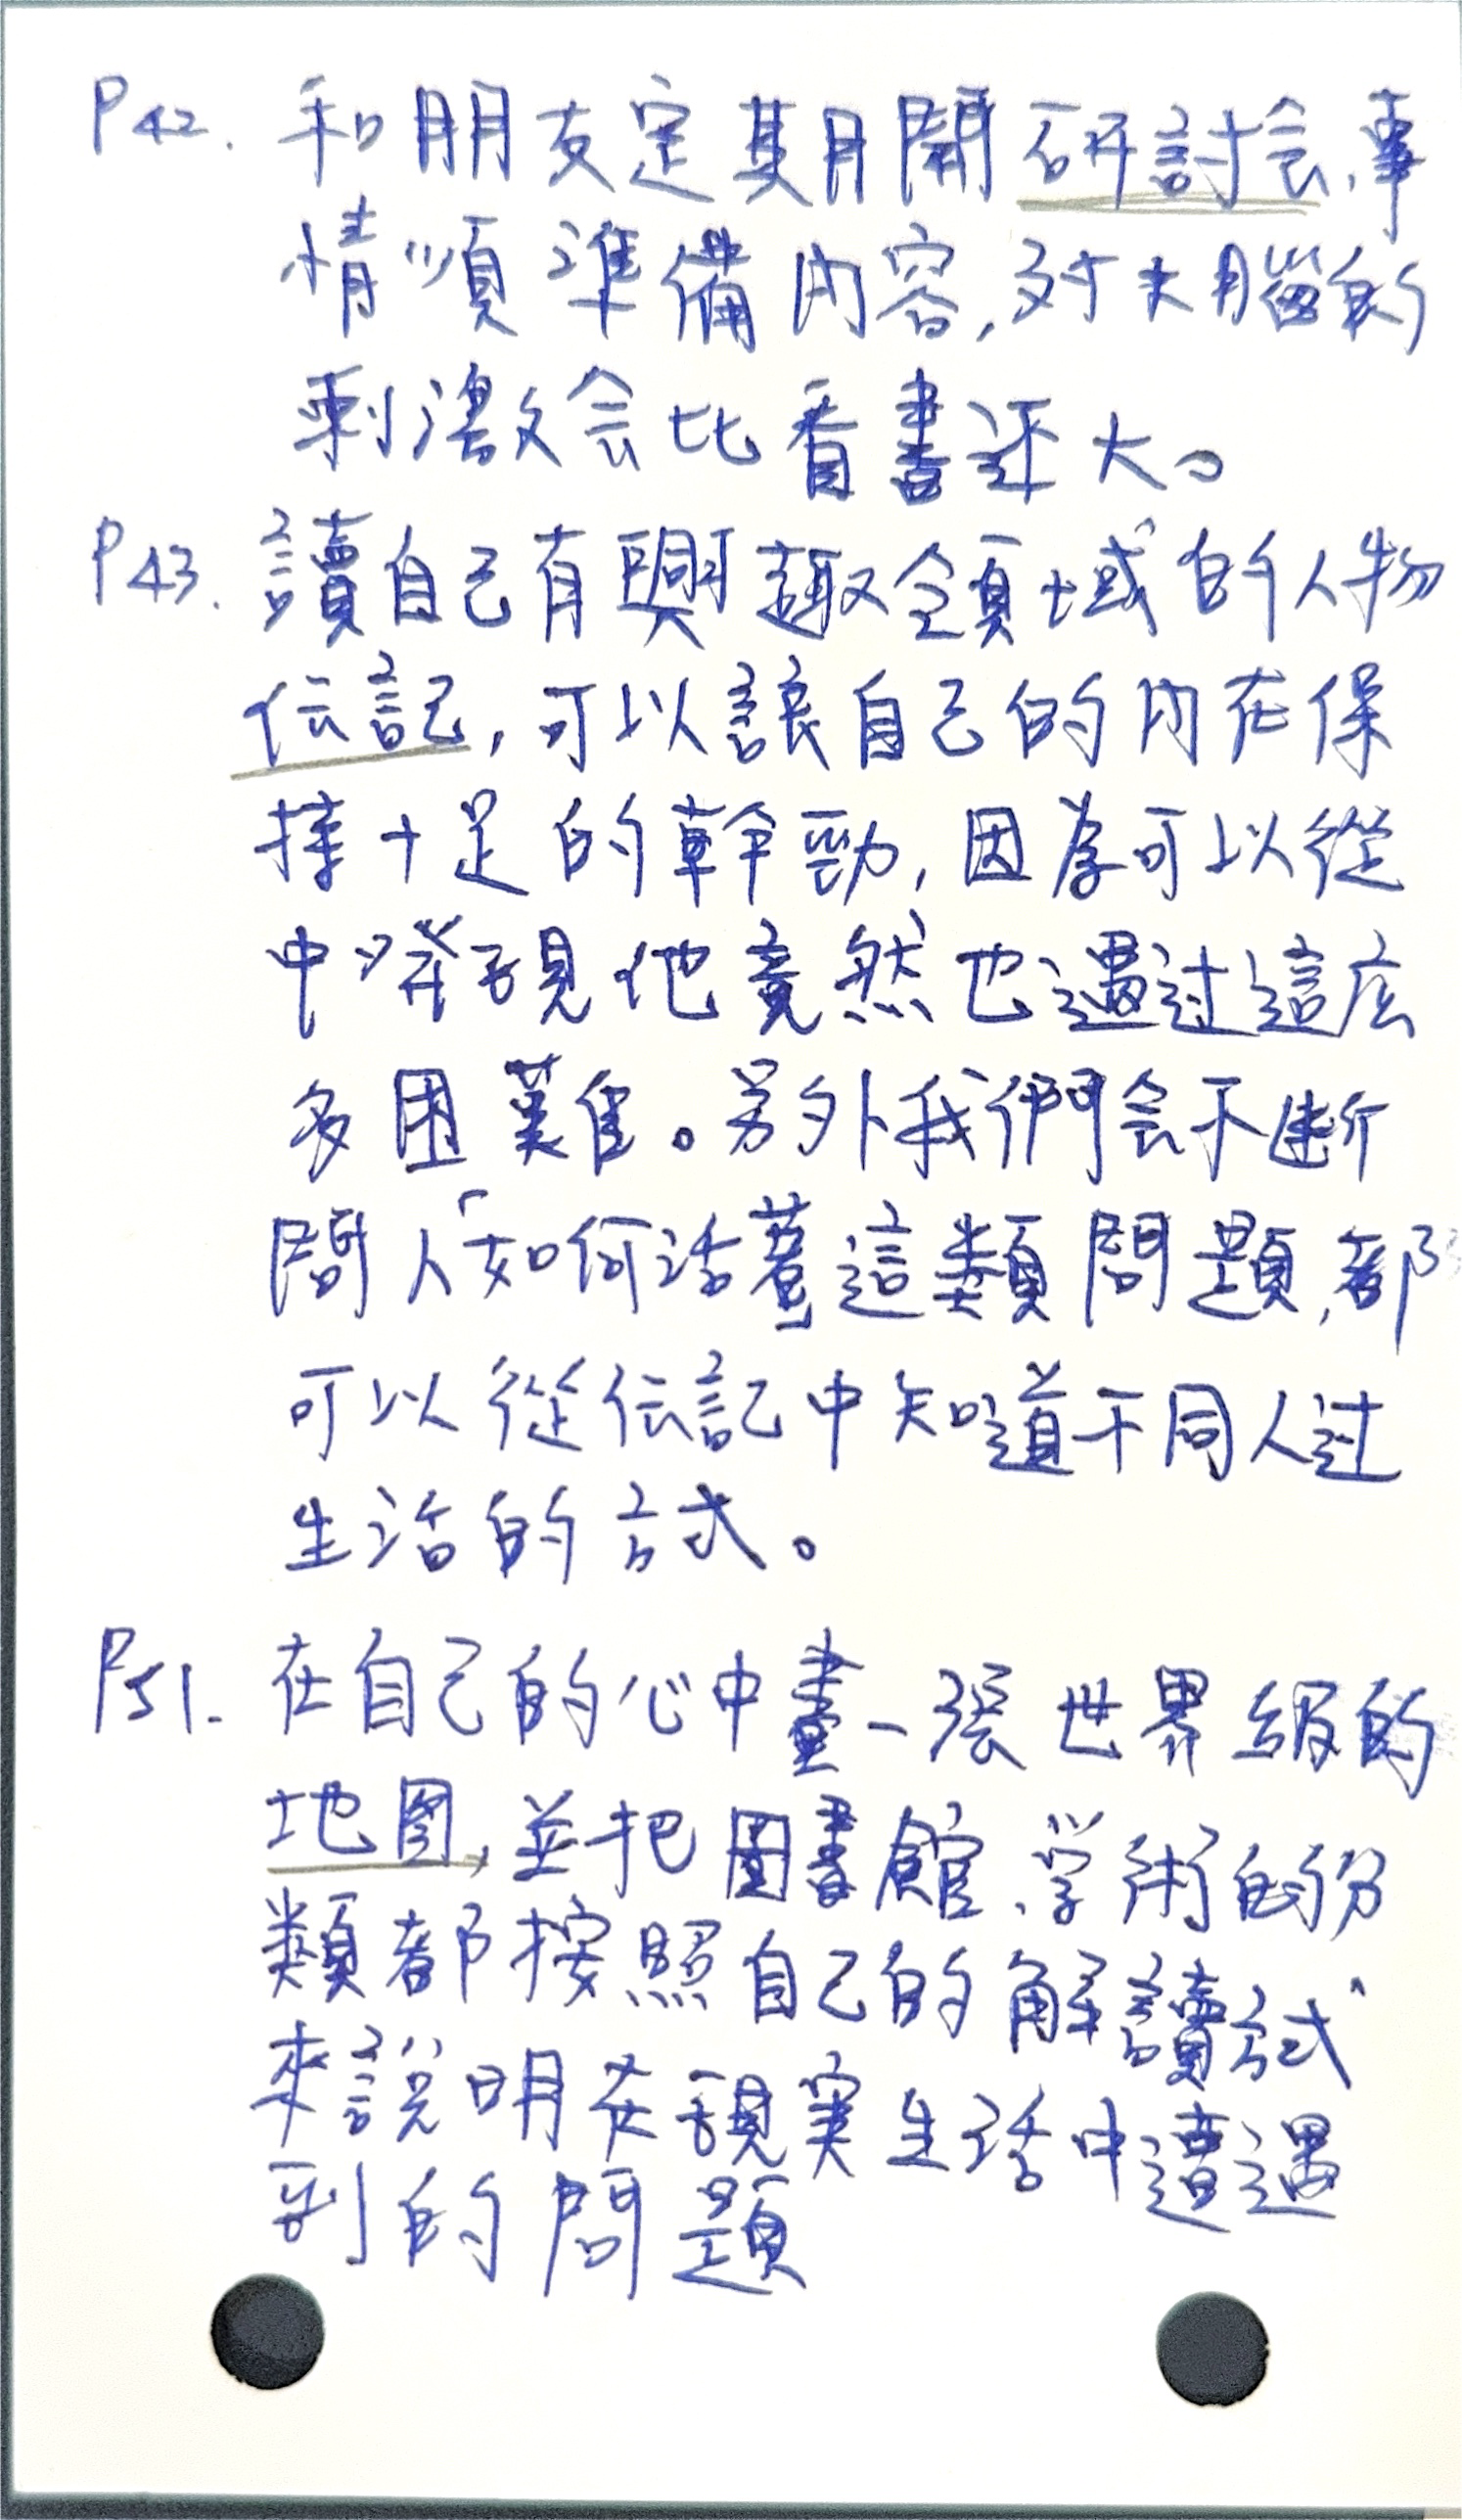 P42. 和朋友定期開研討会,事
情須準備內容,对大腦的
刺激会比看書还大。
P43. 讀自己有興趣領域的人物
伝記,可以讓自己的内在保
持十足的幹勁,因為可以從
中發現他竟然也遇过這広
多困難。另外我們会不断
問人「如何活著」這類問題,都
可以從伝記中知道不同人过
生活的方式。
P51. 在自己的心中畫一張世界級的
地圖,並把圖書館、学術的份
類都按照自己的解讀方式
來說明在現実生活中遭遇
到的問題